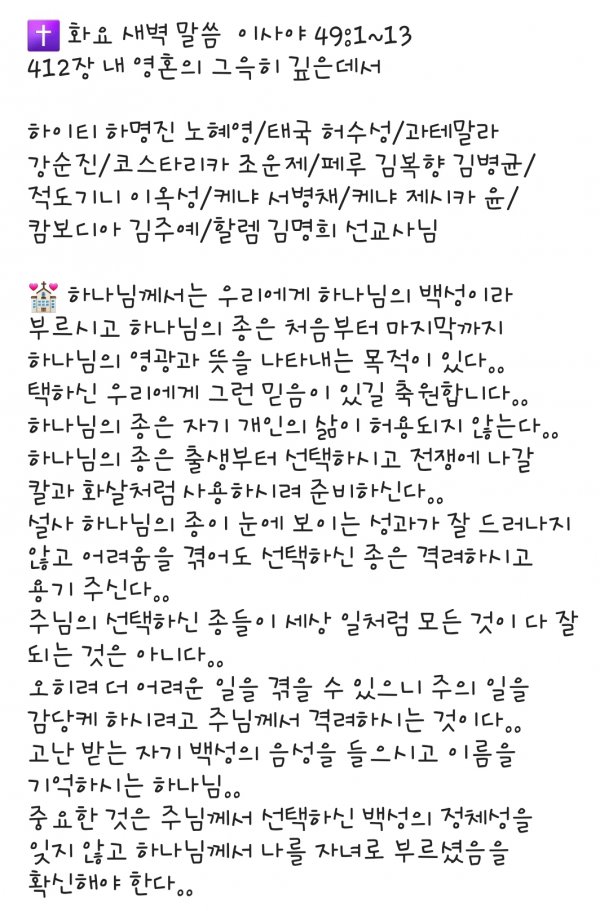 ✝️ 화요 새벽 말씀  이사야 49:1~13
412장 내 영혼의 그윽히 깊은데서

하이티 하명진 노혜영/태국 허수성/과테말라
강순진/코스타리카 조운제/페루 김복향 김병균/
적도기니 이옥성/케냐 서병채/케냐 제시카 윤/
캄보디아 김주예/할렘 김명희 선교사님

💒 하나님께서는 우리에게 하나님의 백성이라
부르시고 하나님의 종은 처음부터 마지막까지
하나님의 영광과 뜻을 나타내는 목적이 있다..
택하신 우리에게 그런 믿음이 있길 축원합니다..
하나님의 종은 자기 개인의 삶이 허용되지 않는다..
하나님의 종은 출생부터 선택하시고 전쟁에 나갈
칼과 화살처럼 사용하시려 준비하신다..
설사 하나님의 종이 눈에 보이는 성과가 잘 드러나지
않고 어려움을 겪어도 선택하신 종은 격려하시고
용기 주신다..
주님의 선택하신 종들이 세상 일처럼 모든 것이 다 잘
되는 것은 아니다..
오히려 더 어려운 일을 겪을 수 있으니 주의 일을
감당케 하시려고 주님께서 격려하시는 것이다..
고난 받는 자기 백성의 음성을 들으시고 이름을
기억하시는 하나님..
중요한 것은 주님께서 선택하신 백성의 정체성을
잊지 않고 하나님께서 나를 자녀로 부르셨음을
확신해야 한다..